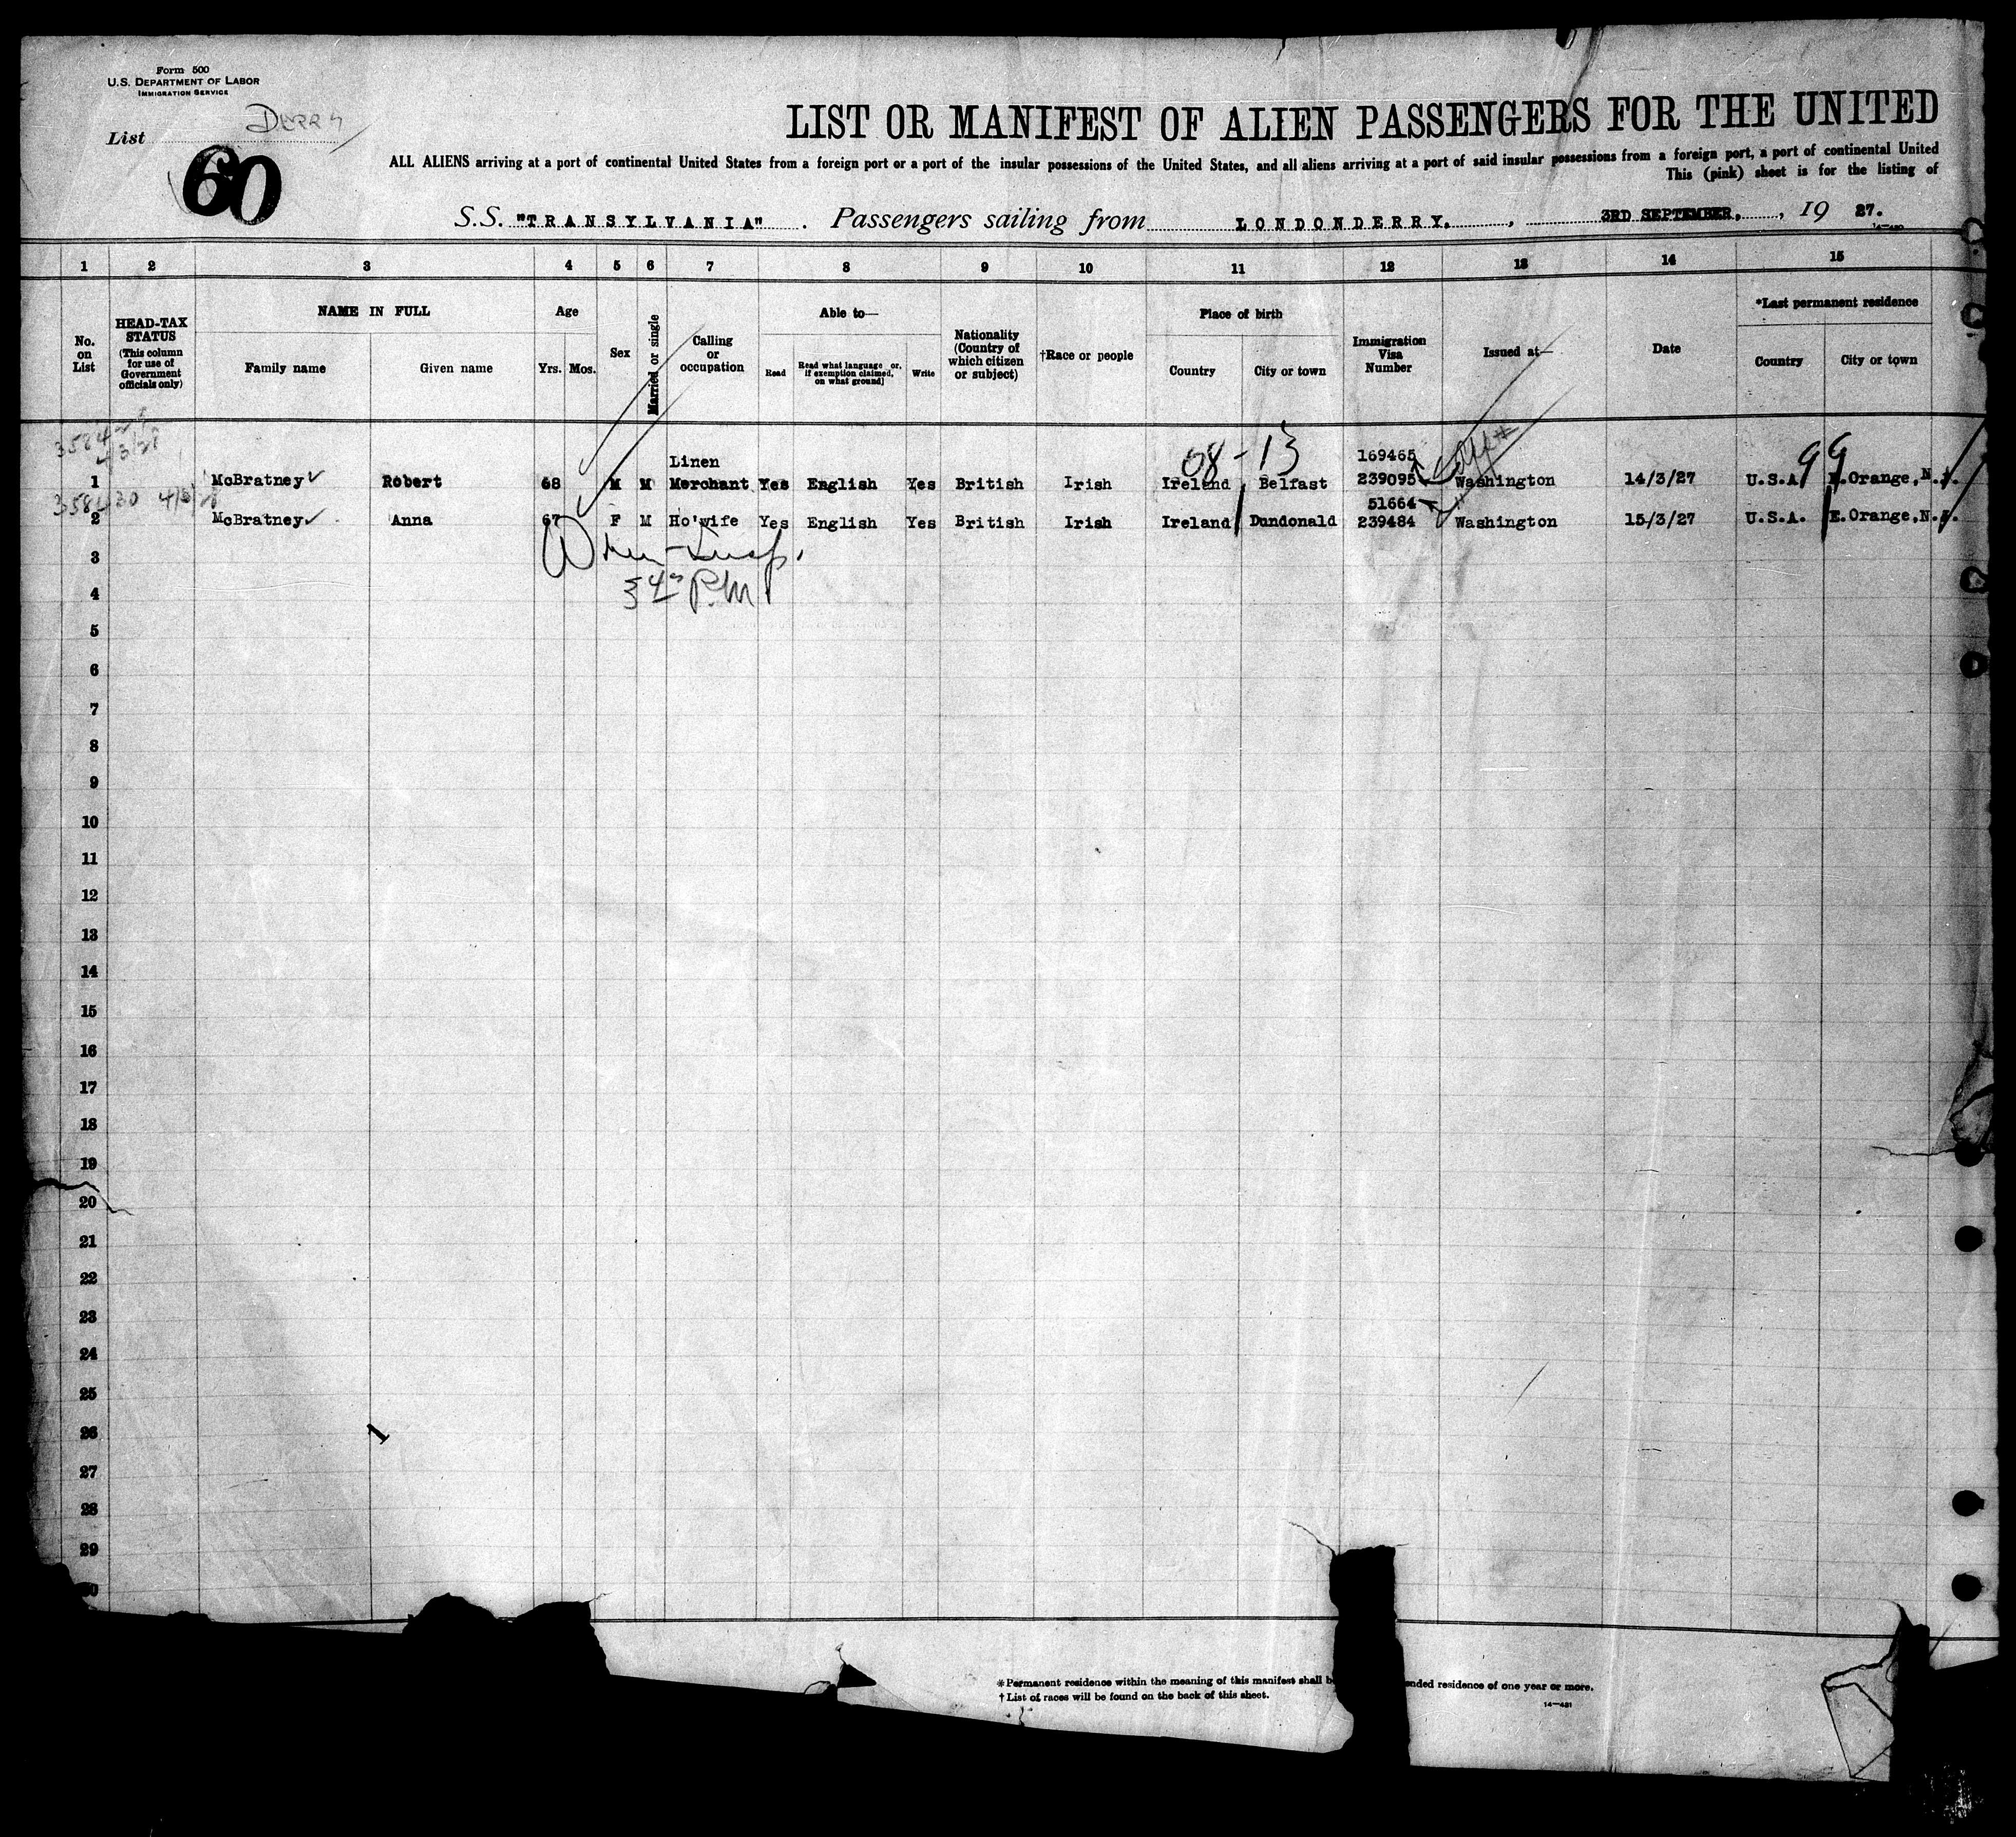 Form 500
U.S. DEPARTMENT OF LABOR
IMMIGRATION SERVICE
List Derry
60
LIST OR MANIFEST OF ALIEN PASSENGERS FOR THE UNITED
ALL ALIENS arriving at a port of continental United States from a foreign port or a port of the insular possessions of the United States, and all aliens arriving at a port of said insular possessions from a foreign port, a port of continental United
This (pink) sheet is for the listing of
S.S. "TRANSYLVANIA". Passengers sailing from LONDONDERRY, 3RD SEPTEMBER, 19 27.
14-480
1 2 3 4 5 6 7 8 9 10 11 12 13 14 15
No. on List
HEAD-TAX STATUS (This column for use of Government officials only)
NAME IN FULL
Family name Given name
Age
Yrs. Mos.
Sex
Married or single
Calling or occupation
Able to—
Read Read what language or, if exemption claimed, on what ground] Write
Nationality (Country of which citizen or subject)
†Race or people
Place of birth
Country City or town
Immigration Visa Number
Issued at—
Date
*Last permanent residence
Country City or town
08-13 99
169465
1 McBratney Robert 68 M M Linen Merchant Yes English Yes British Irish Ireland Belfast 239095 Washington 14/3/27 U.S.A. E.Orange, N.J.
51664
2 McBratney Anna 67 F M Ho'wife Yes English Yes British Irish Ireland Dundonald 239484 Washington 15/3/27 U.S.A. E.Orange, N.J.
3
P.M
4
5
6
7
8
9
10
11
12
13
14
15
16
17
18
19
20
21
22
23
24
25
26
27
28
29
*Permanent residence within the meaning of this manifest shall be ended residence of one year or more.
† List of races will be found on the back of this sheet.
14-481